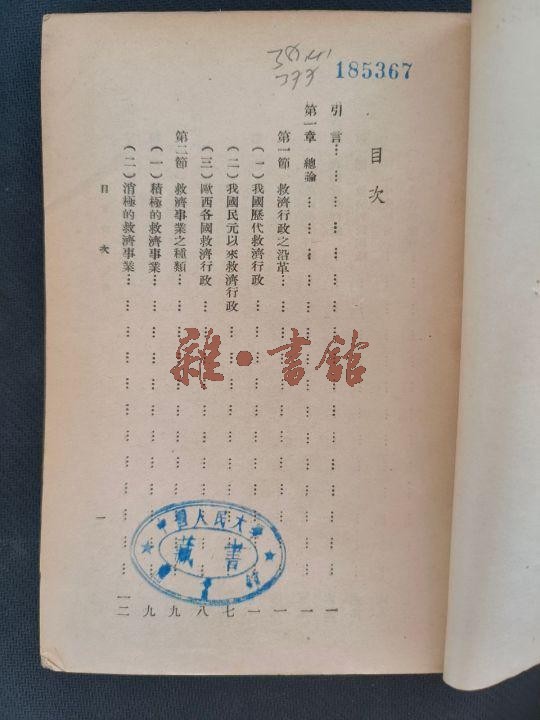 185367
目次
引言……一
第一章 總論……一
第一節 救濟行政之沿革……一
(一)我國歷代救濟行政……一
(二)我國民元以來救濟行政……七
(三)歐西各國救濟行政……八
第二節 救濟事業之種類……九
(一)積極的救濟事業……九
(二)消極的救濟事業……一二
目次
一
雜·書館
中國人民大學
藏書